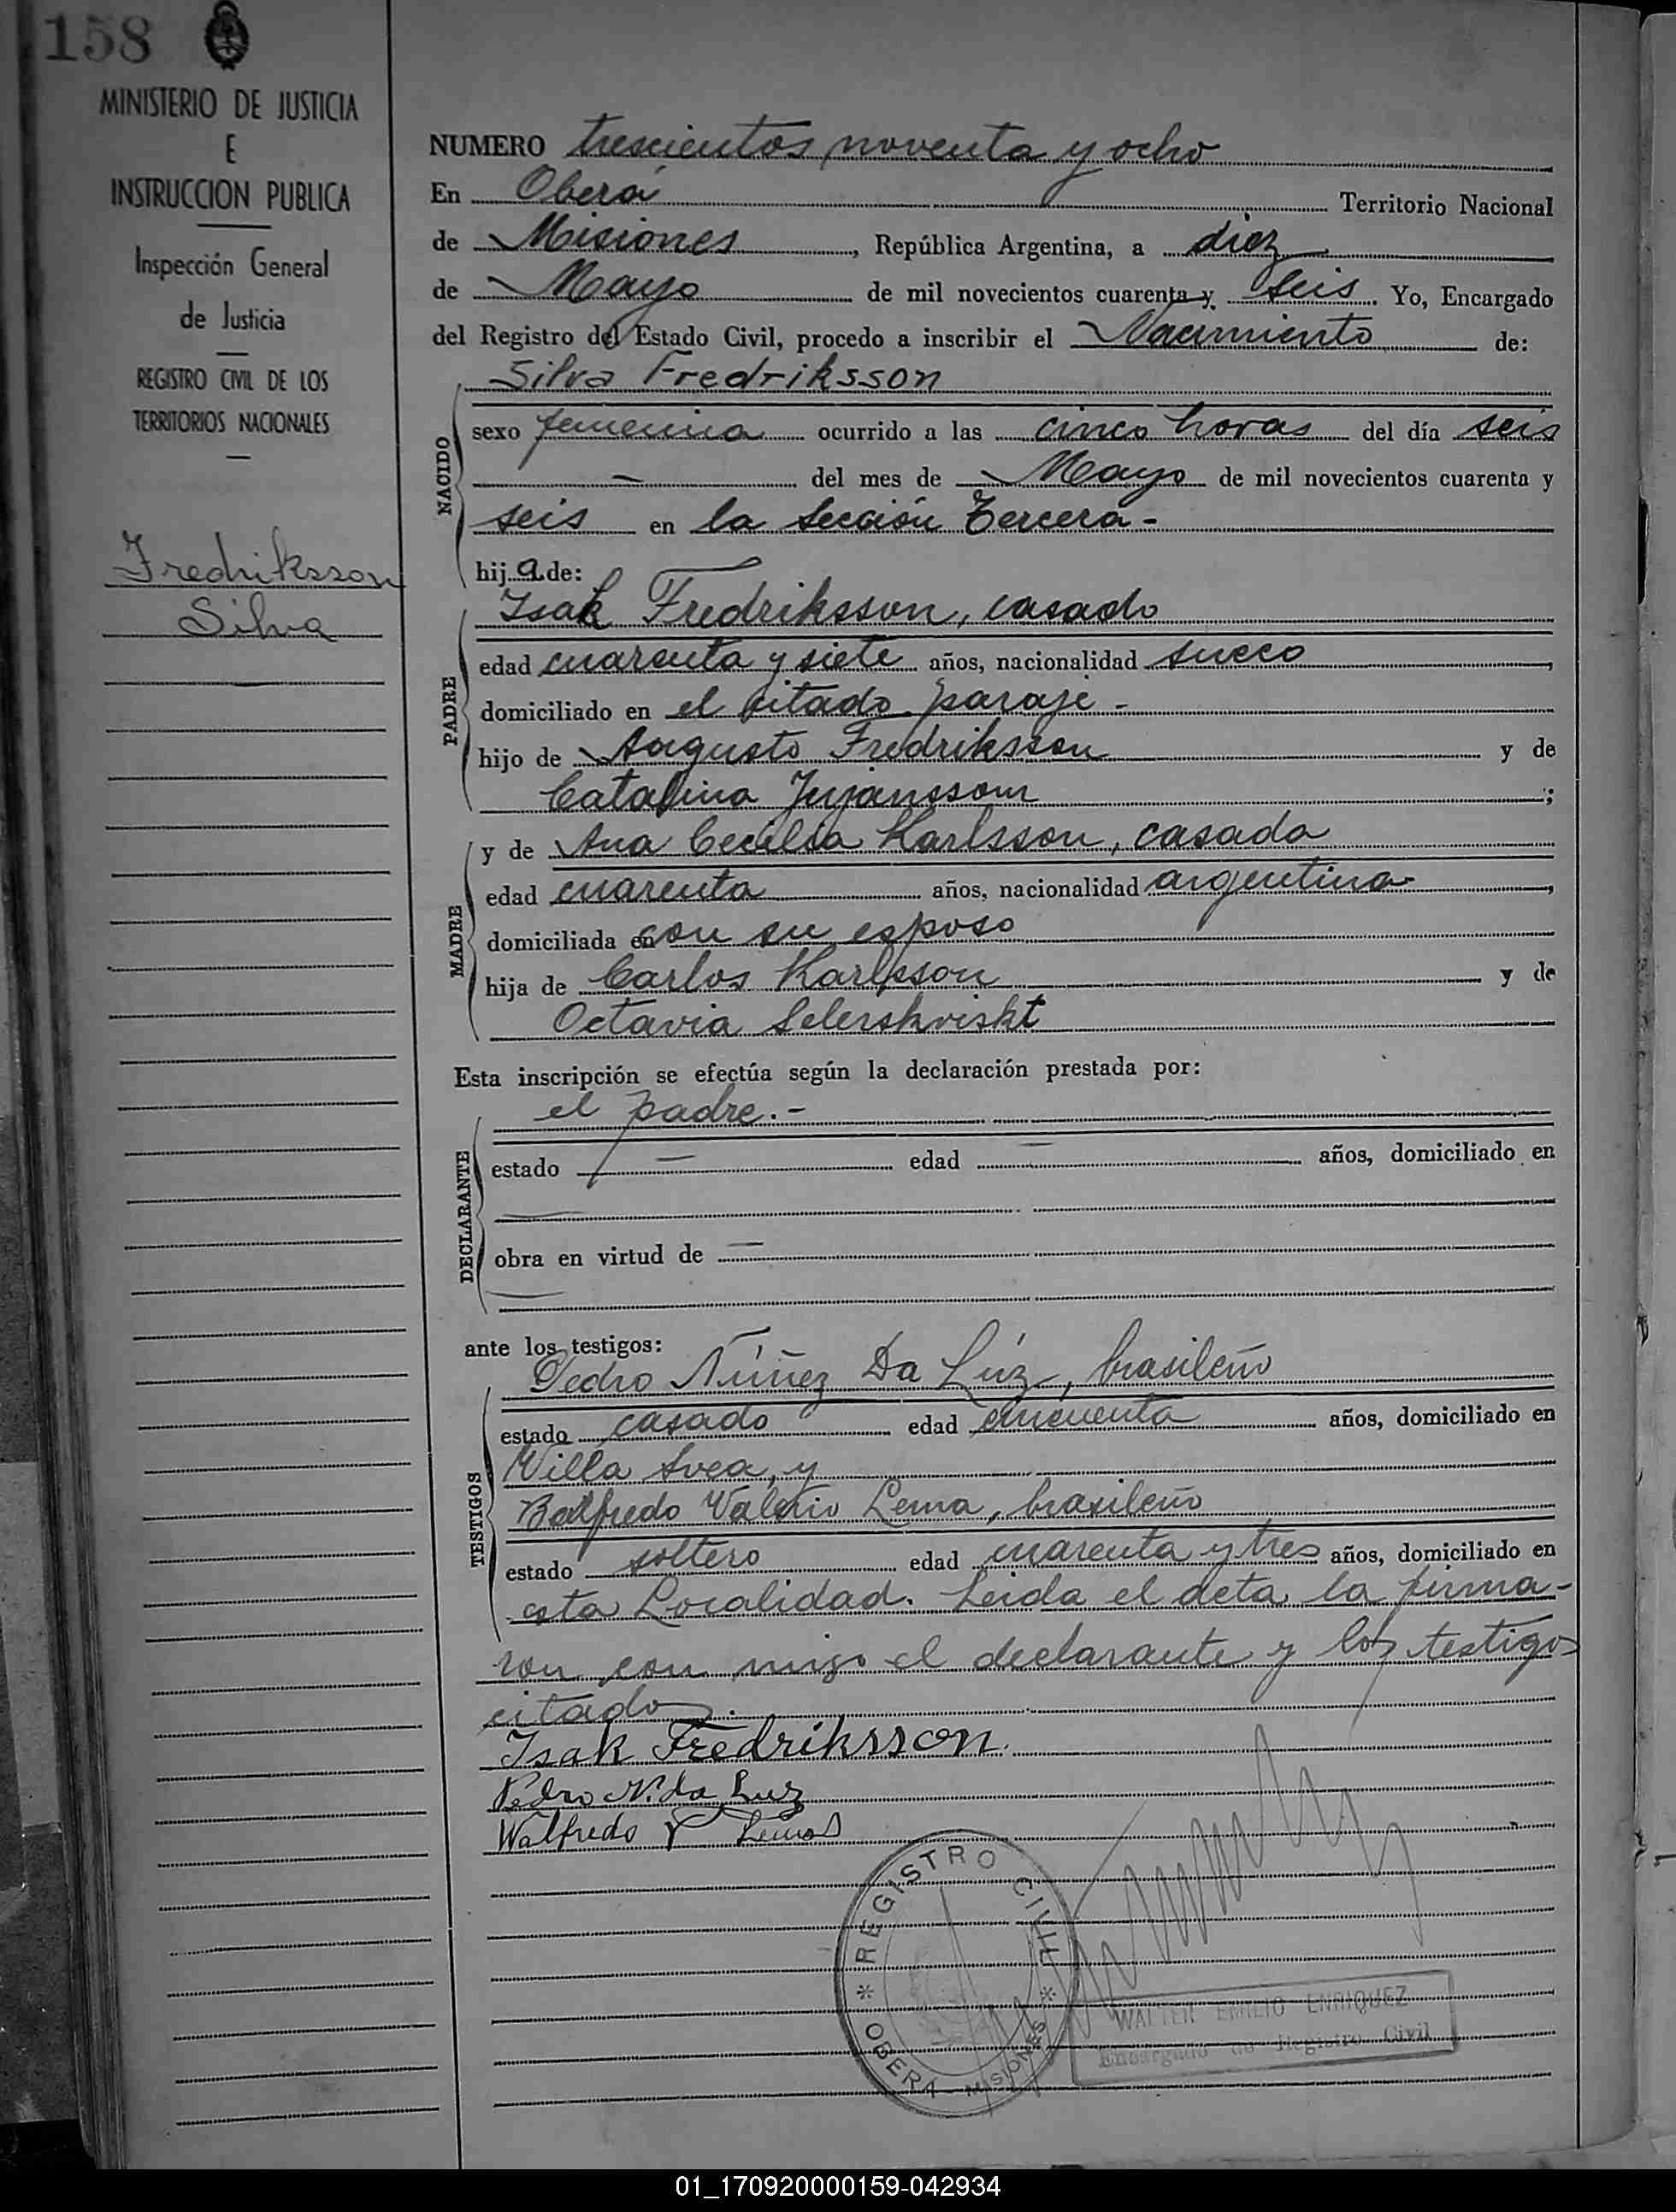 158
MINISTERIO DE JUSTICIA
E
INSTRUCCION PUBLICA
Inspección General
de Justicia
REGISTRO CIVIL DE LOS
TERRITORIOS NACIONALES
Fredriksson
Silva
NUMERO trescientos noventa y ocho
En Oberá Territorio Nacional
de Misiones, República Argentina, a diez
de Mayo de mil novecientos cuarenta y seis. Yo, Encargado
del Registro del Estado Civil, procedo a inscribir el Nacimiento de:
Silva Fredriksson
NACIDO
sexo femenina ocurrido a las cinco horas del día seis
— del mes de Mayo de mil novecientos cuarenta y
seis en la Sección Tercera -
hij a de:
PADRE
Isak Fredriksson, casado
edad cuarenta y siete años, nacionalidad sueco,
domiciliado en el citado paraje -
hijo de Augusto Fredriksson y de
Catalina ;
MADRE
y de Ana Cecilia Karlsson, casada
edad cuarenta años, nacionalidad argentina,
domiciliada en con su esposo
hija de Carlos Karlsson y de
Octavia
Esta inscripción se efectúa según la declaración prestada por:
el padre.-
DECLARANTE
estado — edad — años, domiciliado en
obra en virtud de —
ante los testigos:
TESTIGOS
Pedro Núñez Da Lúz, brasileño
estado casado edad cincuenta años, domiciliado en
Villa Svea, y
Balfredo Valerio Lema, brasileño
estado soltero edad cuarenta y tres años, domiciliado en
esta Localidad. Leida el acta la firma-
ron con migo el declarante y los testigos
citados.
Isak Fredriksson.
Pedro N. da Luz
Walfredo V Lemos
REGISTRO CIVIL
* OBERA - MISIONES *
WALTER EMILIO ENRIQUEZ
Encargado de Registro Civil
01_170920000159-042934